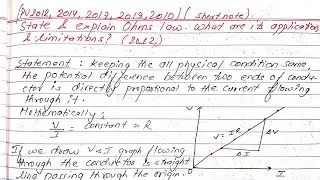 (PU 2012, 2014, 2017, 2019, 2010) (short note)
State & explain Ohms law. what are its application
& limitations? (2012)
Statement : keeping the all physical condition same,
the potential difference between two ends of condu-
ctor is directly proportional to the current flowing
through it.
Mathematically,
V/I = constant = R
If we draw V & I graph flowing
through the conductor is straight
line passing through the origin.
V
V = IR
ΔV
ΔI
O
I